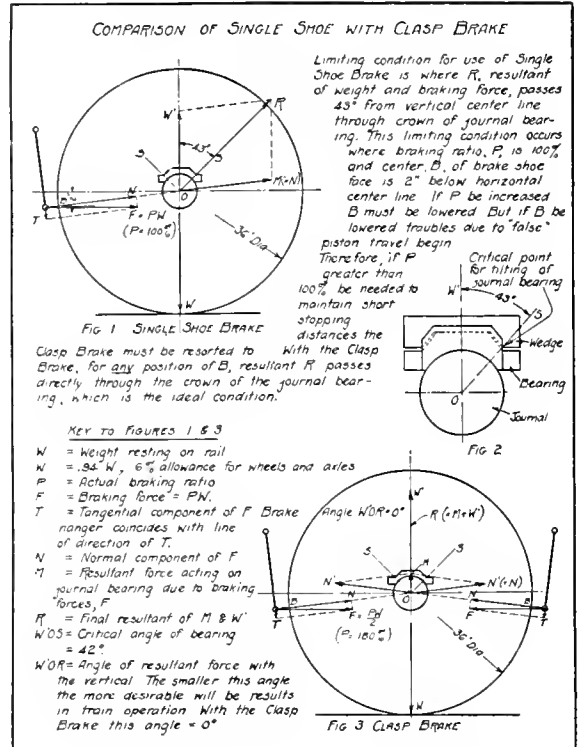 COMPARISON OF SINGLE SHOE WITH CLASP BRAKE
Limiting condition for use of Single
Shoe Brake is where R, resultant
of weight and braking force, passes
43° from vertical center line
through crown of journal bear-
ing. This limiting condition occurs
where braking ratio, P, is 100%
and center, B, of brake shoe
face is 2" below horizontal
center line If P be increased
B must be lowered But if B be
lowered troubles due to "false"
piston travel begin
Therefore, if P
greater than
100% be needed to
maintain short
stopping
distances the
Clasp Brake must be resorted to With the Clasp
Brake, for any position of B, resultant R passes
directly through the crown of the journal bear-
ing, which is the ideal condition.
W'
R
43°
S
S
M(=N)
O
N
B
2"
T
F = PW
(P=100%)
36" Dia
W
FIG 1 SINGLE SHOE BRAKE
Critical point
for tilting of
journal bearing
W'
43°
S
Wedge
Bearing
O
Journal
FIG 2
KEY TO FIGURES 1 & 3
W = Weight resting on rail
W = .94 W, 6% allowance for wheels and axles
P = Actual braking ratio
F = Braking force = PW.
T = Tangential component of F Brake
hanger coincides with line
of direction of T.
N = Normal component of F
M = Resultant force acting on
journal bearing due to braking
forces, F
R = Final resultant of M & W'
W'OS = Critical angle of bearing
= 42°.
W'OR = Angle of resultant force with
the vertical The smaller this angle
the more desirable will be results
in train operation With the Clasp
Brake this angle = 0°
Angle W'OR=0°
W'
R(=M+W')
S
M
S
N'
N'(=N)
O
N
N
B
B
T
T
F = PW/2
(P=180%)
F
36" Dia
W
FIG 3 CLASP BRAKE